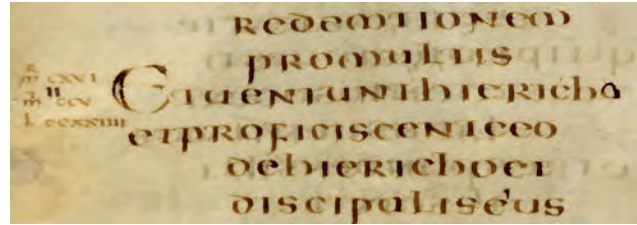 REDEMTIONEM
PROMULTIS
ETUENIUNTHIERICHO
ETPROFICISCENTEEO
DEHIERICHOET
DISCIPULISEIUS